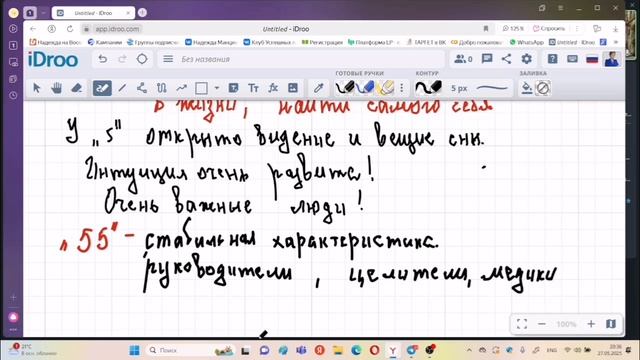 Untitled - iDroo
app.idroo.com
Untitled - iDroo
125%
Отзывы
Надежда на Восто
Кампании
Группы подписч
Надежда Манцев
Клуб Успешных
Регистрация
Платформа LP
ТАРГЕТ в ВК
Добро пожаловат
WhatsApp
Untitled - iDroo
iDroo
Без названия
ГОТОВЫЕ РУЧКИ
КОНТУР
ЗАЛИВКА
5 px
в жизни, найти самого себя
У „5" открыто видение и вещие сны.
Интуиция очень развита!
Очень важные люди!
„55" - стабильная характеристика.
руководители, целители, медики
100%
21°C
В осн. облачно
Поиск
ENG
20:36
27.05.2025